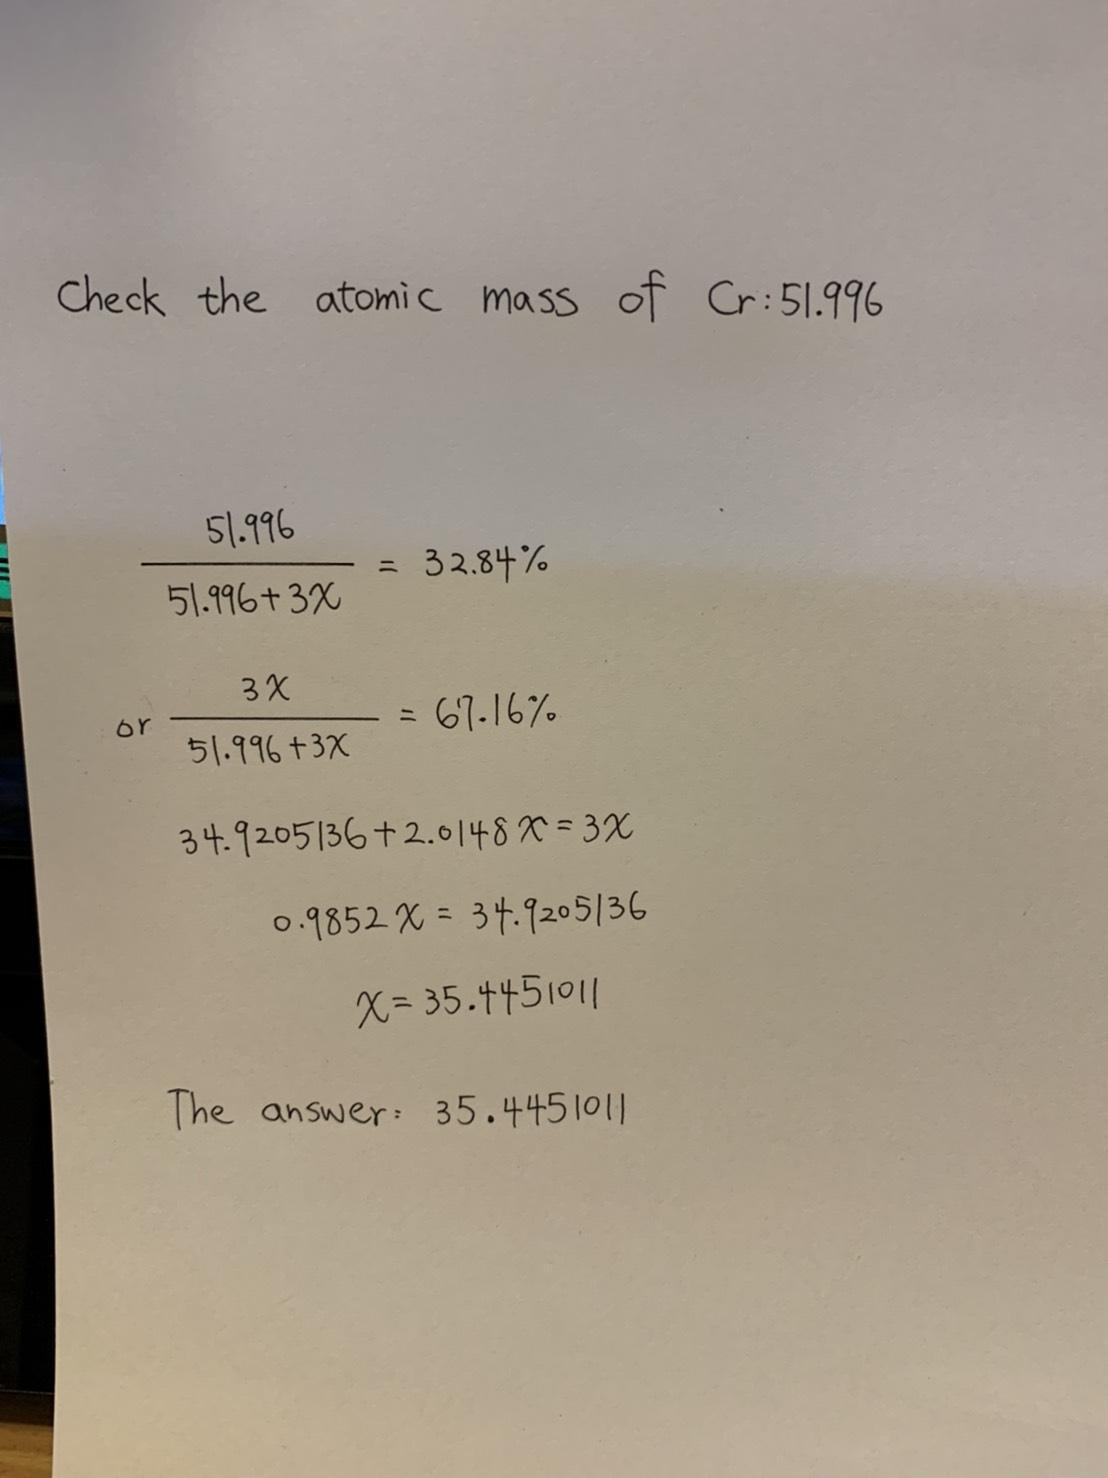 Check the atomic mass of Cr:51.996
51.996
51.996+3x
= 32.84%
or
3x
51.996+3x
= 67.16%
34.9205136+2.0148x=3x
0.9852x = 34.9205136
x=35.4451011
The answer: 35.4451011